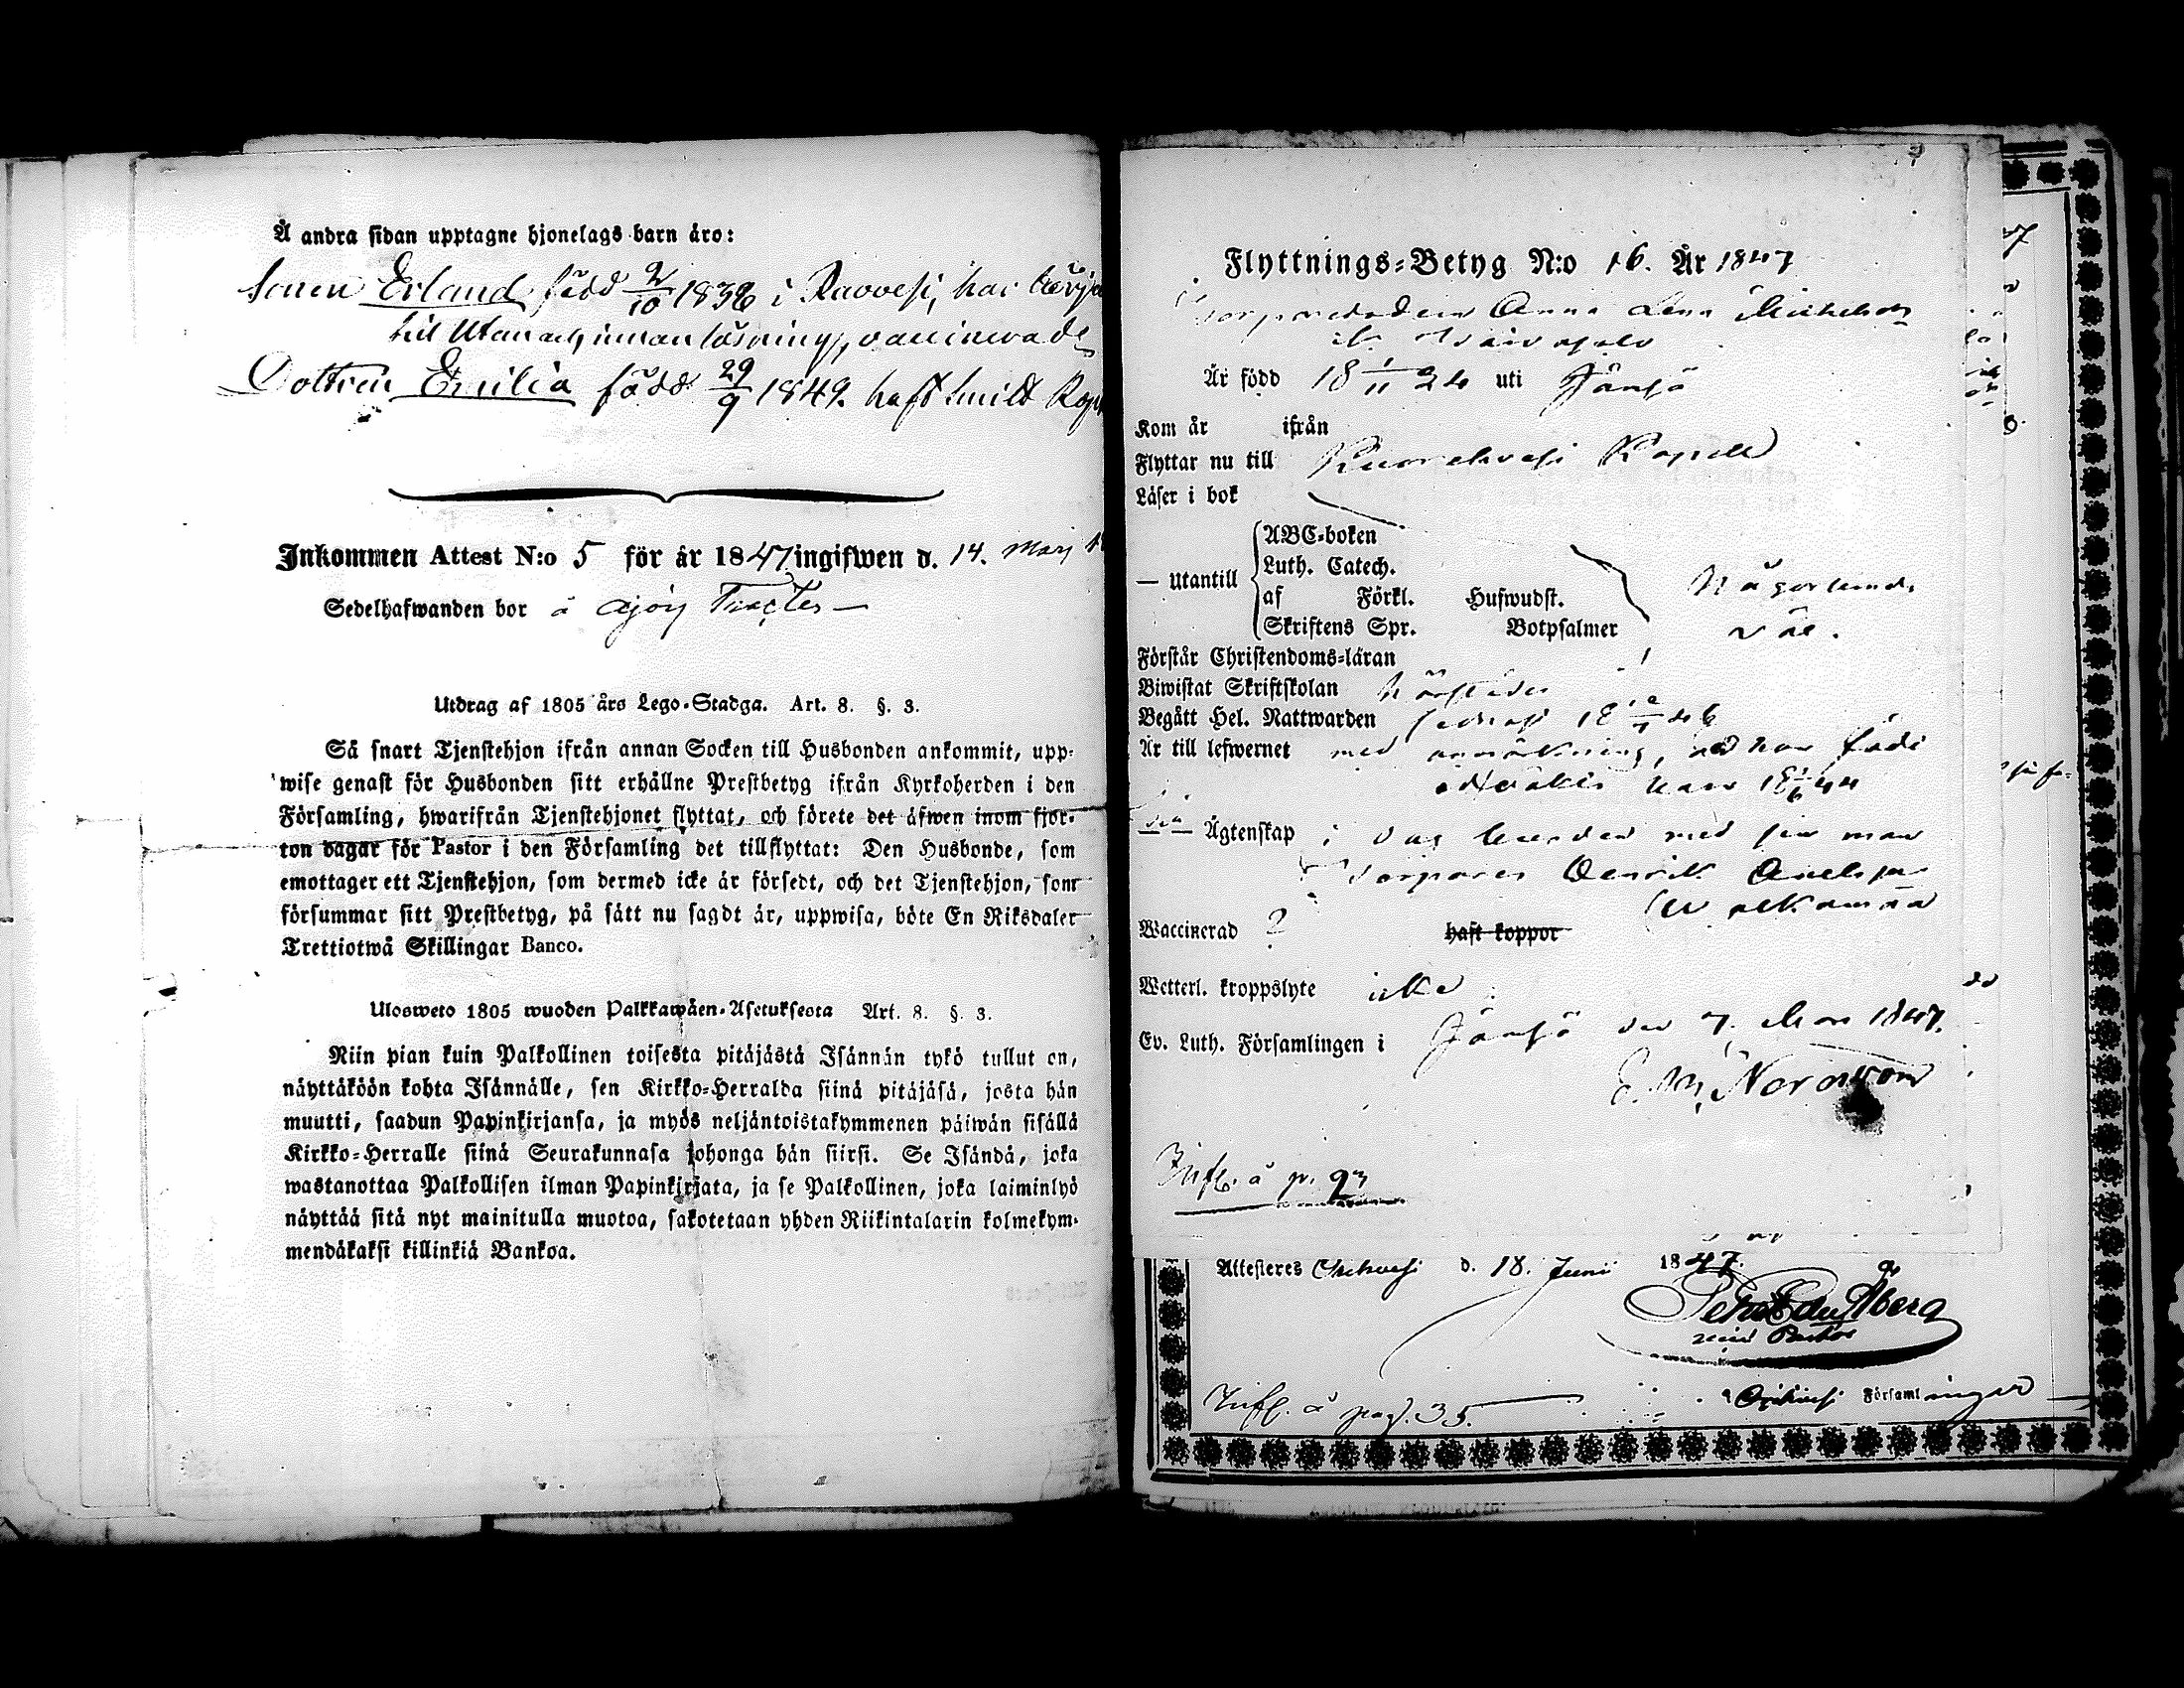 Å andra sidan upptagne hjonelags barn äro:
Sonen Erland född 2/10 1838 i Ravvesi, har börja
till Utan och innan läsning, vaccinerade
Dottren Emilia född 29/9 1849. haft smitt Kop
Inkommen Attest N:o 5 för år 1847 ingifwen d. 14. Maij
Sedelhafwanden bor å
Utdrag af 1805 års Lego-Stadga. Art. 8. §. 3.
Så snart Tjenstehjon ifrån annan Socken till Husbonden ankommit, upp-
wise genast för Husbonden sitt erhållne Prestbetyg ifrån Kyrkoherden i den
Församling, hwarifrån Tjenstehjonet flyttat, och förete det äfwen inom fjor-
ton dagar för Pastor i den Församling det tillflyttat: Den Husbonde, som
emottager ett Tjenstehjon, som dermed icke är försedt, och det Tjenstehjon, som
försummar sitt Prestbetyg, på sätt nu sagdt är, uppwisa, böte En Riksdaler
Trettiotwå Skillingar Banco.
Ulosweto 1805 wuoden Palkkawäen-Asetuksesta Art. 8. §. 3.
Niin pian kuin Palkollinen toisesta pitäjästä Isännän tykö tullut on,
näyttäköön kohta Isännälle, sen Kirkko-Herralda siinä pitäjäsä, josta hän
muutti, saadun Papinkirjansa, ja myös neljäntoistakymmenen päiwän sisällä
Kirkko-Herralle siinä Seurakunnasa johonga hän siirsi. Se Isändä, joka
wastanottaa Palkollisen ilman Papinkirjata, ja se Palkollinen, joka laiminlyö
näyttää sitä nyt mainitulla muotoa, sakotetaan yhden Riikintalarin kolmekym-
mendäkaksi killinkiä Bankoa.
Flyttnings-Betyg N:o 16. År 1847
Anna Lena Michelsdr
Är född 18 1/11 24 uti Jämsä
Kom år ifrån
Flyttar nu till Kuorehvesi Kapell
Läser i bok
— Utantill
ABC-boken
Luth. Catech.
af Förkl. Hufwudst.
Skriftens Spr. Botpsalmer
Någorlunda
väl.
Förstår Christendoms-läran
Biwistat Skriftskolan
Begått Hel. Nattwarden
Är till lefwernet med anmärkning, att hon födt
oäkta barn 18 44
— Ägtenskap i dag med sin man
Torparen Henrik
Waccinerad ? haft koppor
Wetterl. kroppslyte icke
Ev. Luth. Församlingen i Jämsä den 7. Mars 1847.
E. W. Nordström
Infl. å p. 93
Attesteres Orihvesi d. 18. Juni 1847.
Åberg
Infl. å pag. 35.
Orihvesi Församlingar